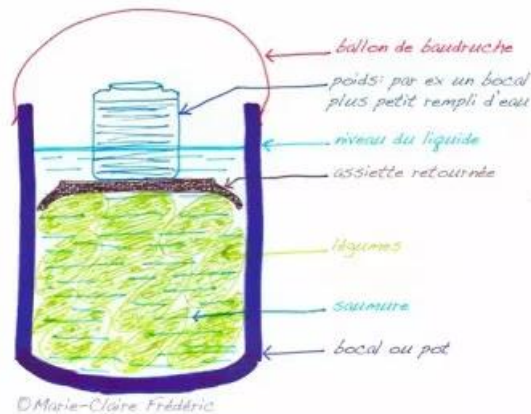 ballon de baudruche
poids: par ex un bocal
plus petit rempli d'eau
niveau du liquide
assiette retournée
légumes
saumure
bocal ou pot
©Marie-Claire Frédéric